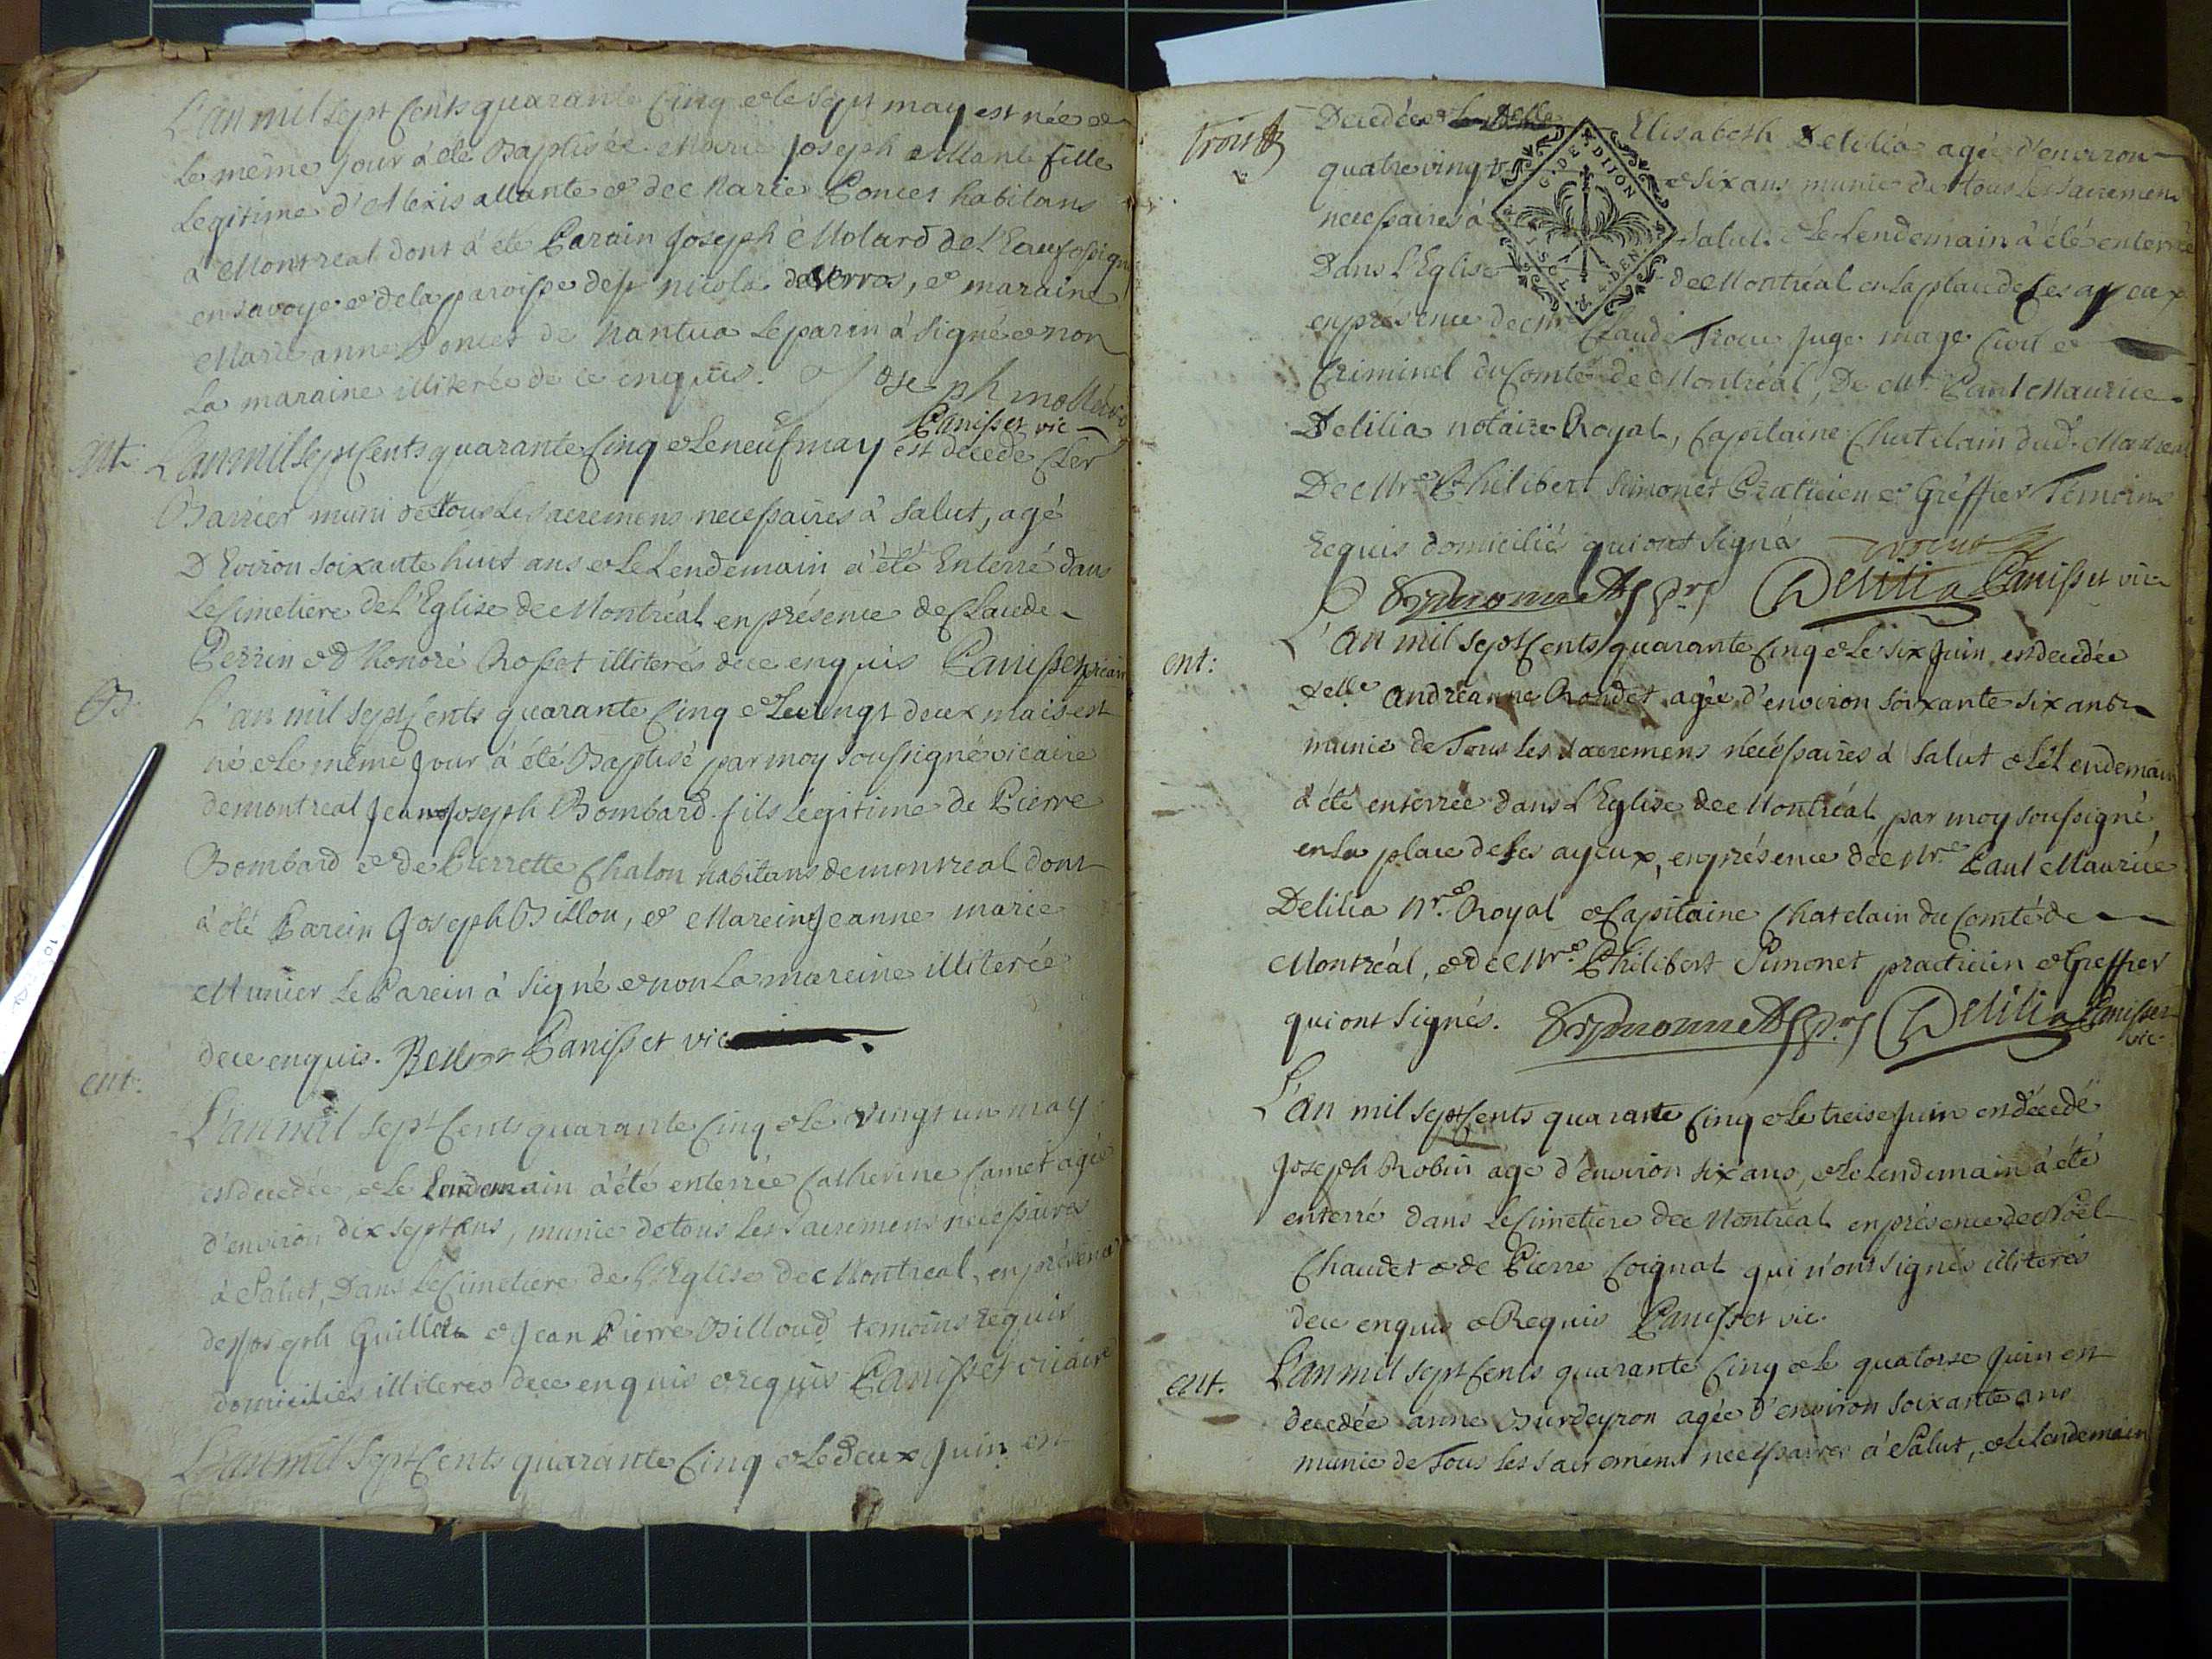 L'an mil sept Cents quarante Cinq & le sept may est née &
le même jour à été Baptisée Marie Joseph allante fille
Legitime d'Alexis allante & de Marie Poncet habitans
à Montreal dont à été Parain Joseph Molard de
en savoye & de la paroisse de st nicola de , & maraine
Marie anne Poncet de Nantua Le parin à signé & non
La maraine illiterée de ce enquis. Joseph mollard
Panisset vic
ent. L'an mil sept Cents quarante Cinq & le neuf may est décedé Cler
Barrier muni de tous Les sacremens necessaires à Salut, agé
D'Eviron soixante huit ans & Le Lendemain à été Enterré dans
Le Cimetiere de L'Eglise de Montréal en présence de Claude
Perrin & d'honoré Rosset illiterés de ce enquis Panisset vicair
B. L'an mil sept Cents quarante Cinq & Le vingt deux mai est
né & le même Jour à été Baptisé par moy soussigné vicaire
de montreal Jean Joseph Bombard fils légitime de Pierre
Bombard & de Pierrette Chalon habitans de montreal dont
à été Parein Joseph Billon, & Mareine Jeanne marie
Munier Le Parein à signé & non La mareine illiterée
de ce enquis. Panisset vic
ent. L'an mil sept Cents quarante Cinq & Le vingt un may
est decedée, & Le Lendemain à été enterrée Catherine Camet agée
d'environ dix sept ans, munie de tous Les Sacremens necessaires
à Salut, Dans Le Cimetiere de L'Eglise de Montreal, en présence
de Joseph Guillot & Jean Pierre Billoud temoins requis
domiciliés illiteres de ce enquis & requis Panisset vicaire
L'an mil sept Cents quarante Cinq & Le deux Juin est
trois
Decedée Elisabeth Delilia agée d'environ
quatre vingt & six ans munie de tous Les sacremens
necessaires à Salut. & Le Lendemain à été enterrée
Dans L'Eglise de Montréal en La place de Ses ayeux
G. DE DIJON
en présence de Mre Claude Trocu Juge mage Civil &
Criminel du Comté de Montréal, De Mre Paul Maurice
Delilia notaire Royal, Capitaine Chatelain dud. Montreal
De Mre Philibert Simonet Praticien & Gréffier Témoins
Requis domiciliés qui ont signés
Trocu
Simonnet Delilia Panisset vic
ent: L'an mil sept Cents quarante Cinq & Le six Juin est decedée
delle. Andréanne Rondet agée d'environ soixante six ans
munie de Tous Les sacremens nécéssaires à Salut & Le Lendemain
à été enterrée dans L'Eglise de Montréal par moy soussigné
en La place de ses ayeux, en présence de Mre Paul Maurice
Delilia Nre Royal & Capitaine Chatelain du Comté de
Montréal, & de Mre Philibert Simonet practicien & Greffier
qui ont signés. Simonnet Delilia Panisset
vic
L'an mil sept Cents quarante Cinq & Le treise Juin est décedé
Joseph Robin agé d'environ six ans, & Le Lendemain à été
enterré dans Le Cimetiere de Montréal en présence de Noël
Chaudet & de Pierre Coignat qui n'ont signés illiterés
de ce enquis & Requis Panisset vic.
ent. L'an mil sept Cents quarante Cinq & Le quatorse Juin est
decedée anne Burdeyron agée d'environ soixante ans
munie de Tous Les sacremens necessaires à Salut, & Le Lendemain